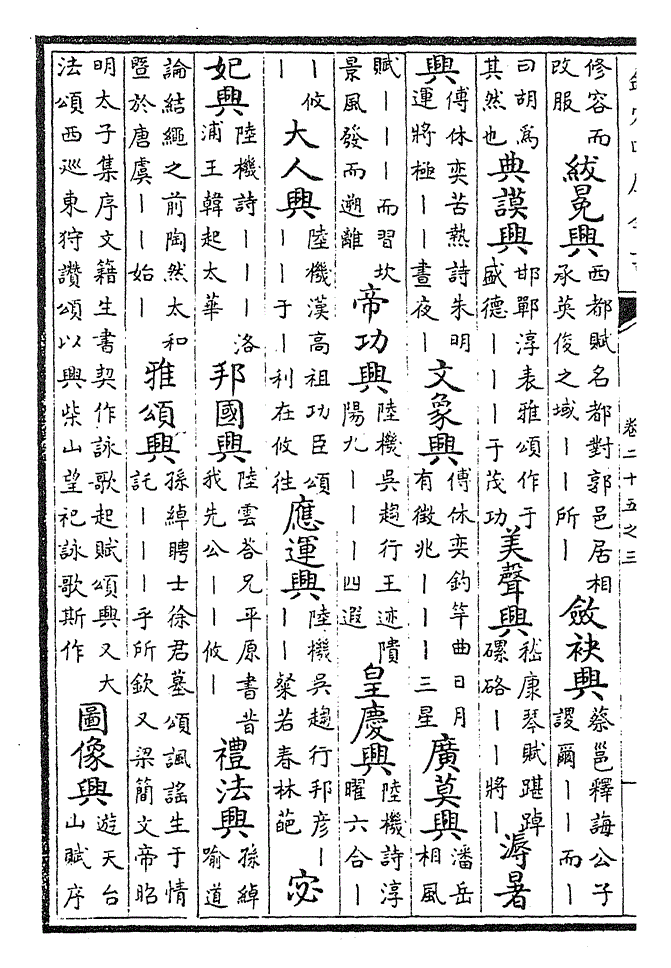 欽定四庫全書
卷二十五之三
修容而改服紱冕興西都賦名都對郭邑居相承英俊之域丨丨所丨斂袂興蔡邕釋誨公子謖爾丨丨而丨
曰胡為其然也典謨興邯鄲淳表雅頌作于盛德丨丨丨于茂功美聲興嵇康琴賦踸踔磥硌丨丨將丨溽暑
興傅休奕苦熱詩朱明運將極丨丨晝夜丨文象興傅休奕釣竿曲日月有徵兆丨丨丨三星廣莫興潘岳相風
賦丨丨丨而習坎景風發而遡離帝功興陸機吳趨行王迹隤陽九丨丨丨四遐皇慶興陸機詩淳曜六合丨
丨攸丨大人興陸機漢高祖功臣頌丨丨于丨利在攸往應運興陸機吳趨行邦彥丨丨丨粲若春林葩宓
妃興陸機詩丨丨丨洛浦王韓起太華邦國興陸雲荅兄平原書昔我先公丨丨攸丨禮法興孫綽喻道
論結繩之前陶然太和暨於唐虞丨丨始丨雅頌興孫綽聘士徐君墓頌諷謠生于情託丨丨丨乎所欽又梁簡文帝昭
明太子集序文籍生書契作詠歌起賦頌興又大法頌西巡東狩讚頌以興柴山望祀詠歌斯作圖像興遊天台山賦序